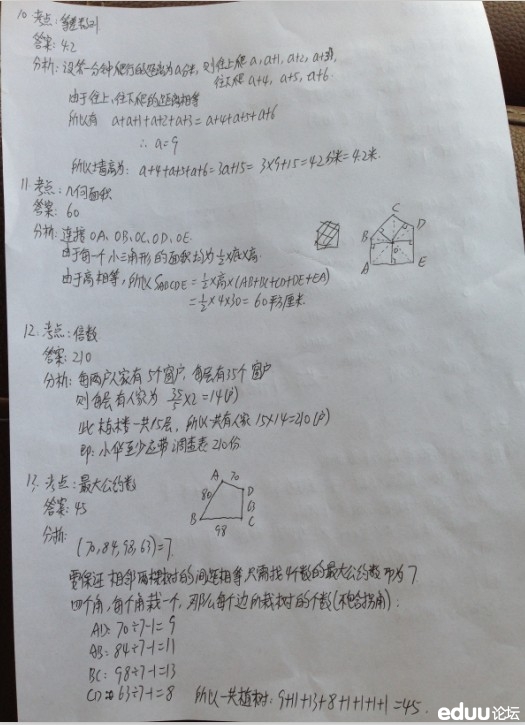 10. 考点：等差数列
答案：4.2
分析：设第一分钟爬行的距离为a分米，则往上爬 a, a+1, a+2, a+3,
往下爬 a+4, a+5, a+6.
由于往上,往下爬的距离相等
所以有 a+a+1+a+2+a+3 = a+4+a+5+a+6
∴ a=9
所以墙高为: a+4+a+5+a+6=3a+15= 3×9+15=42分米=4.2米.
11. 考点：几何面积
答案：60
分析：连接OA、OB、OC、OD、OE.
由于每一个小三角形的面积均为½×底×高.
由于高相等，所以SABCDE = ½×高×(AB+BC+CD+DE+EA)
=½×4×30=60平方厘米.
C
B
D
O
A
E
12. 考点：倍数
答案：210
分析：每两户人家有5个窗户，每层有35个窗户
则每层有人家为 35/5×2=14(户)
此栋楼一共15层，所以一共有人家15×14=210(户)
即：小华至少应带调查表210份
13. 考点：最大公约数
答案：45
分析：
A 70
D
80
63
B
98
C
(70,84,98,63)=7.
要保证相邻两棵树的间距相等,只需找4个数的最大公约数即为7.
四个角,每个角栽一个,那么每个边所栽树的个数(不包含拐角)：
AD: 70÷7-1=9
AB: 84÷7-1=11
BC: 98÷7-1=13
CD: 63÷7-1=8 所以一共植树: 9+11+13+8+1+1+1+1=45.
eduu论坛